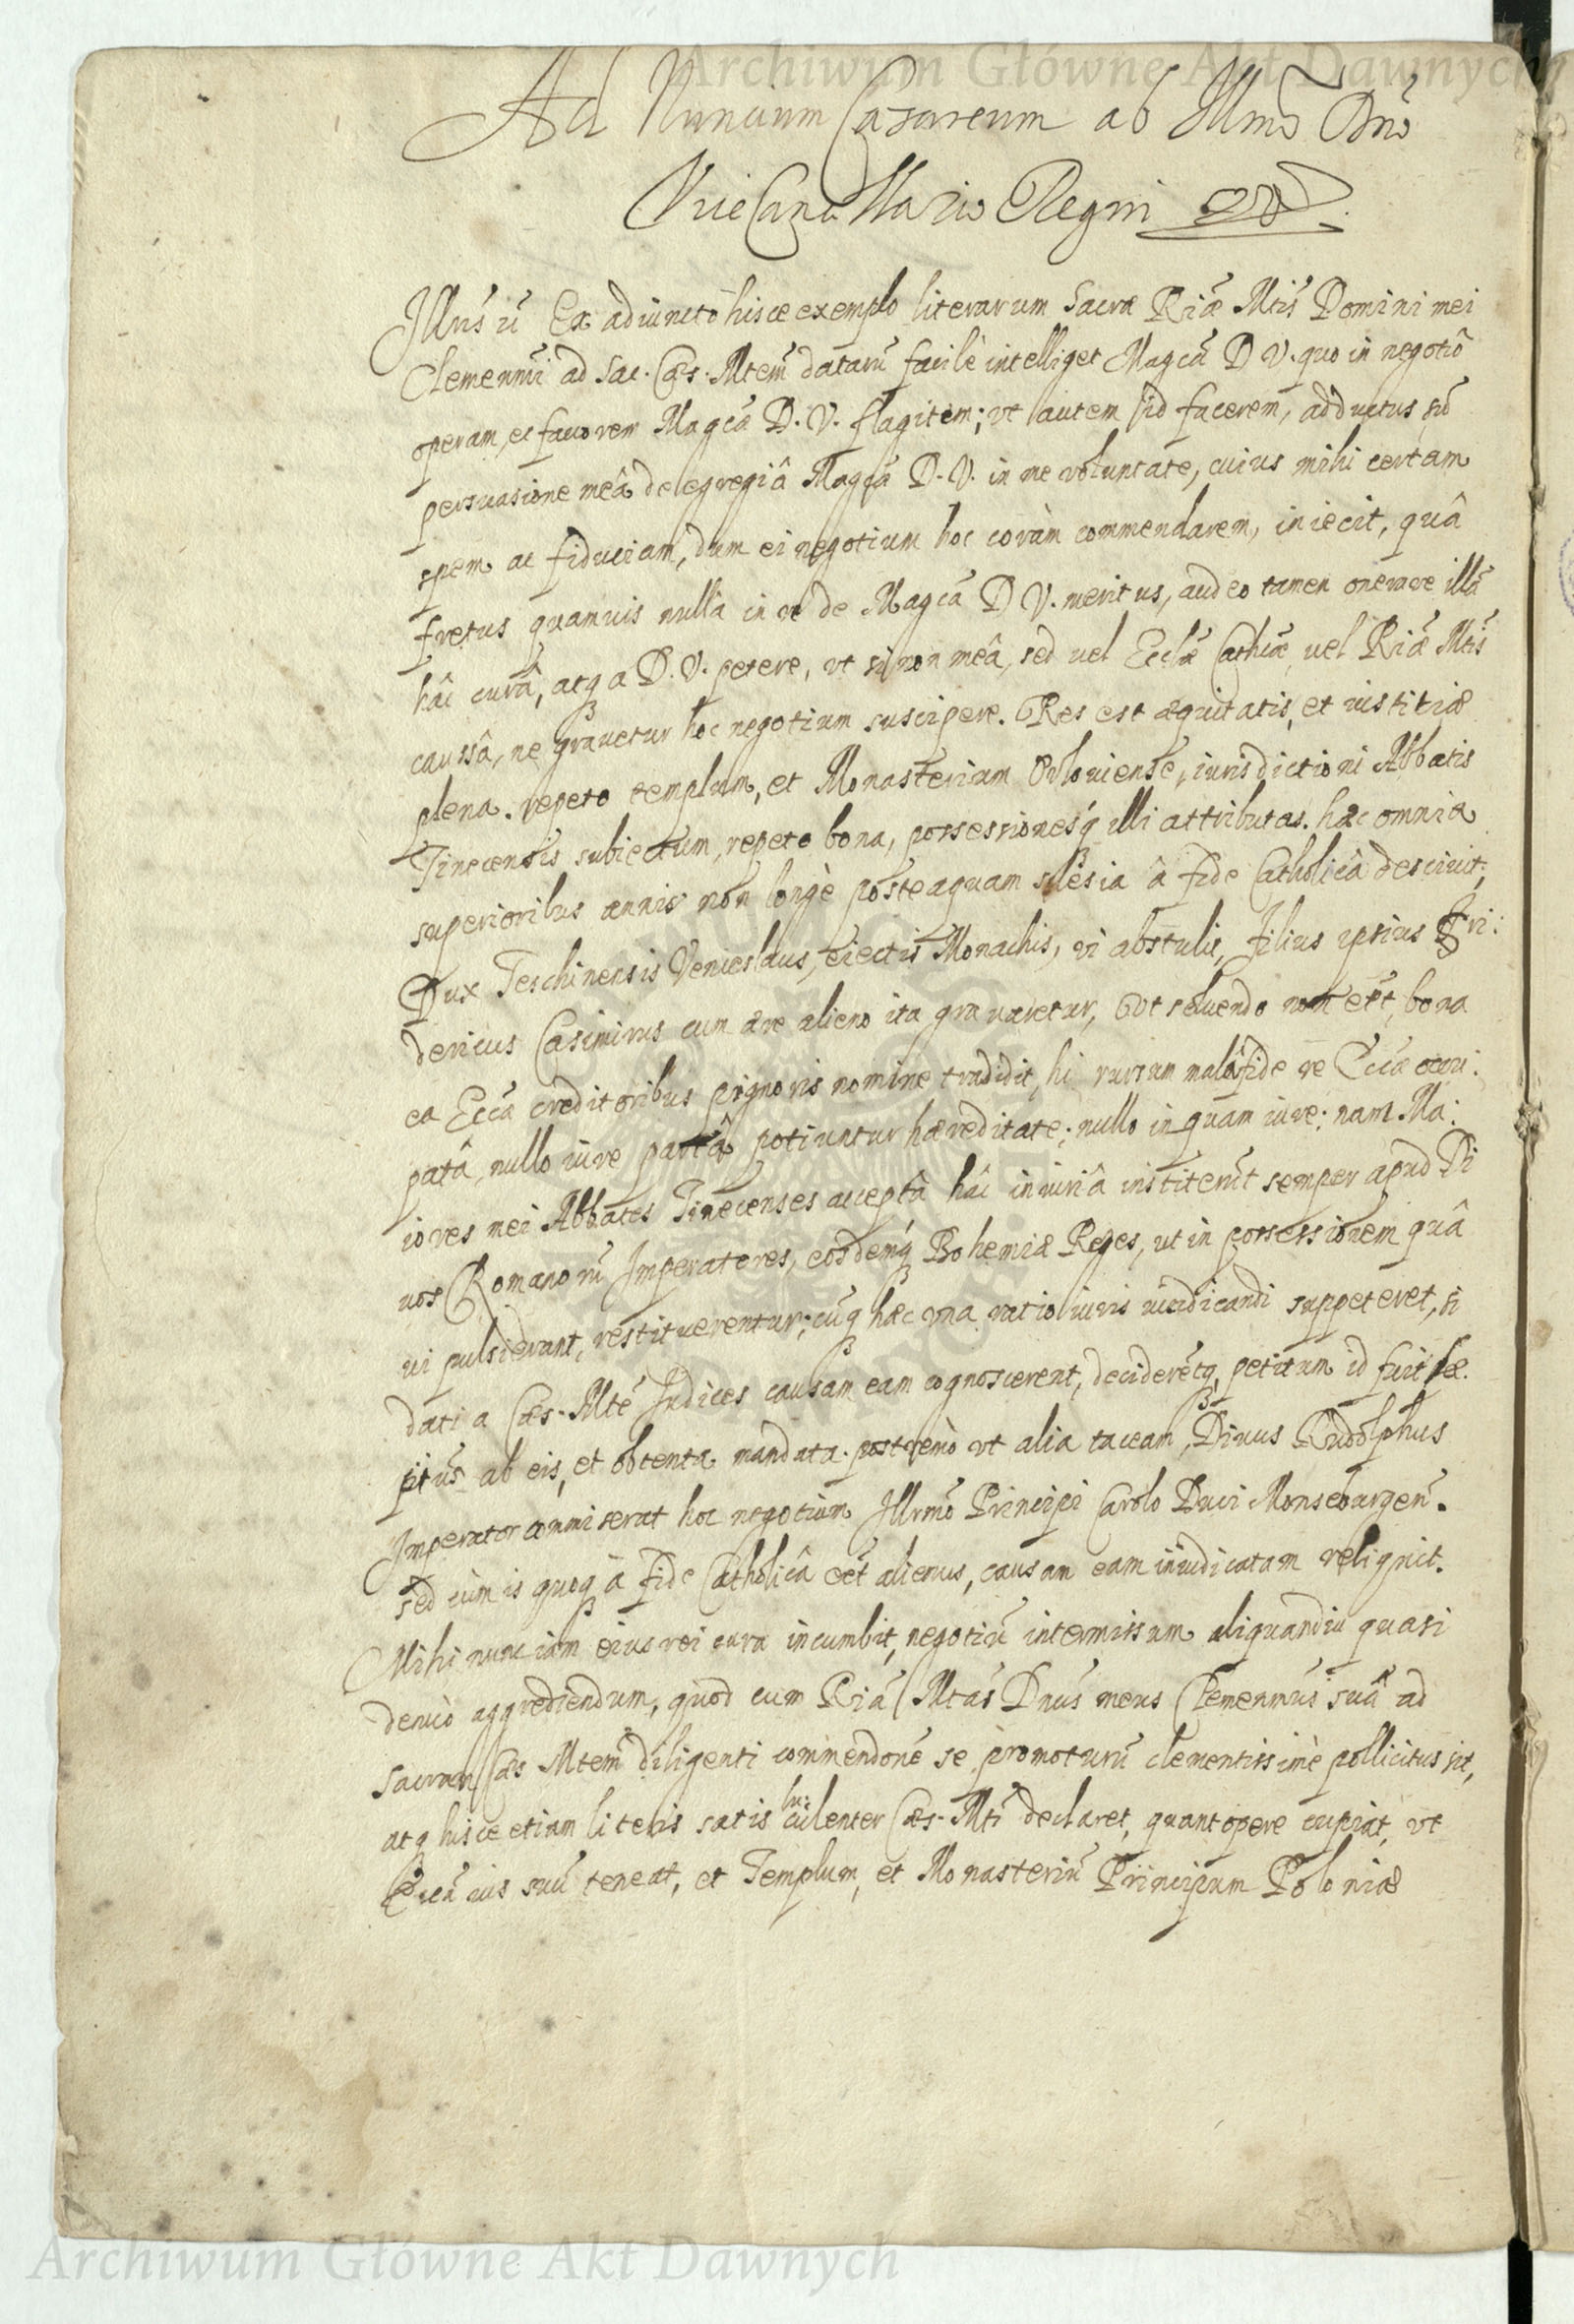 Archiwum Główne Akt Dawnych
Ad Nuncium Cæsareum ab Illmo Dno
Vice Cancellario Regni
Illris ii Ex adiuncto hisce exemplo literarum Sacræ Riæ Mtis Domini mei
Clemenmi ad Sac. Cæs. Mtem dataru facilè intelliget Magca D V. quo in negotio
operam, et fauorem Magca D. V. flagitem; vt autem id facerem, adductus su
persuasione meâ de egregiâ Magca D. V. in me voluntate, cuius mihi certam
spem ac fiduciam, dum ei negotium hoc coràm commendarem, iniecit, quâ
fretus quamuis nulla in re de Magca D V. meritus, audeo tamen onerare illa
hâc curâ, atq a D. V. petere, vt si non meâ, sed uel Ecclæ Cathcæ, uel Riæ Mtis
caussâ, ne grauetur hoc negotium suscipere. Res est æquitatis, et iustitiæ
plena. repeto templum, et Monasterium Orloviense, iurisdictioni Abbatis
Tinecensis subiectum, repeto bona, possessionesq illi attributas. hæc omnia
superioribus annis non longè posteaquam silesia â fide Catholicâ desciuit,
Dux Teschinensis Venceslaus, eiectis Monachis, vi abstulit, filius ipsius Fri:
dericus Casimirus cum ære alieno ita grauaretur, Vt soluendo non eet, bona
ea Eccæ creditoribus pignoris nomine tradidit, hi rursum malâ fide re Eccæ occu:
patâ, nullo iure partâ potiuntur hæreditate; nullo inquam iure; nam Ma:
iores mei Abbates Tinecenses acceptâ hâc iniuriâ institerut semper apud Di
uos Romanoru Imperatores, eosdemq Bohemiæ Reges, ut in possessionem quâ
ui pulsi erant, restituerentur; cuq hæc vna ratio iuris uindicandi suppeteret, si
dati a Cæs. Mte Iudices causam eam cognoscerent, decideretq, petitum id fuit sæ.
pius ab eis, et obtenta mandata. postremò vt alia taceam, Diuus Rudolphus
Imperator commiserat hoc negotium Illrmo Principi Carolo Duci Monsebergen.
sed cùm is quoq â fide Catholicâ eet alienus, causam eam iniudicatam reliquit.
Mihi nunc iam eius rei cura incumbit, negotiu intermissum aliquandiu quasi
denuò aggrediendum, quod cum Ria Mtas Dnus meus Clemenmus suâ ad
sacram Cæs Mtem diligenti commendone se promoturu clementissimè pollicitus sit,
atq hisce etiam literis satis lu: culenter Cæs. Mti declaret, quantopere cupiat, vt
Ecca ius suu teneat, et Templum, et Monasteriu Principum Poloniæ
Archiwum Główne Akt Dawnych